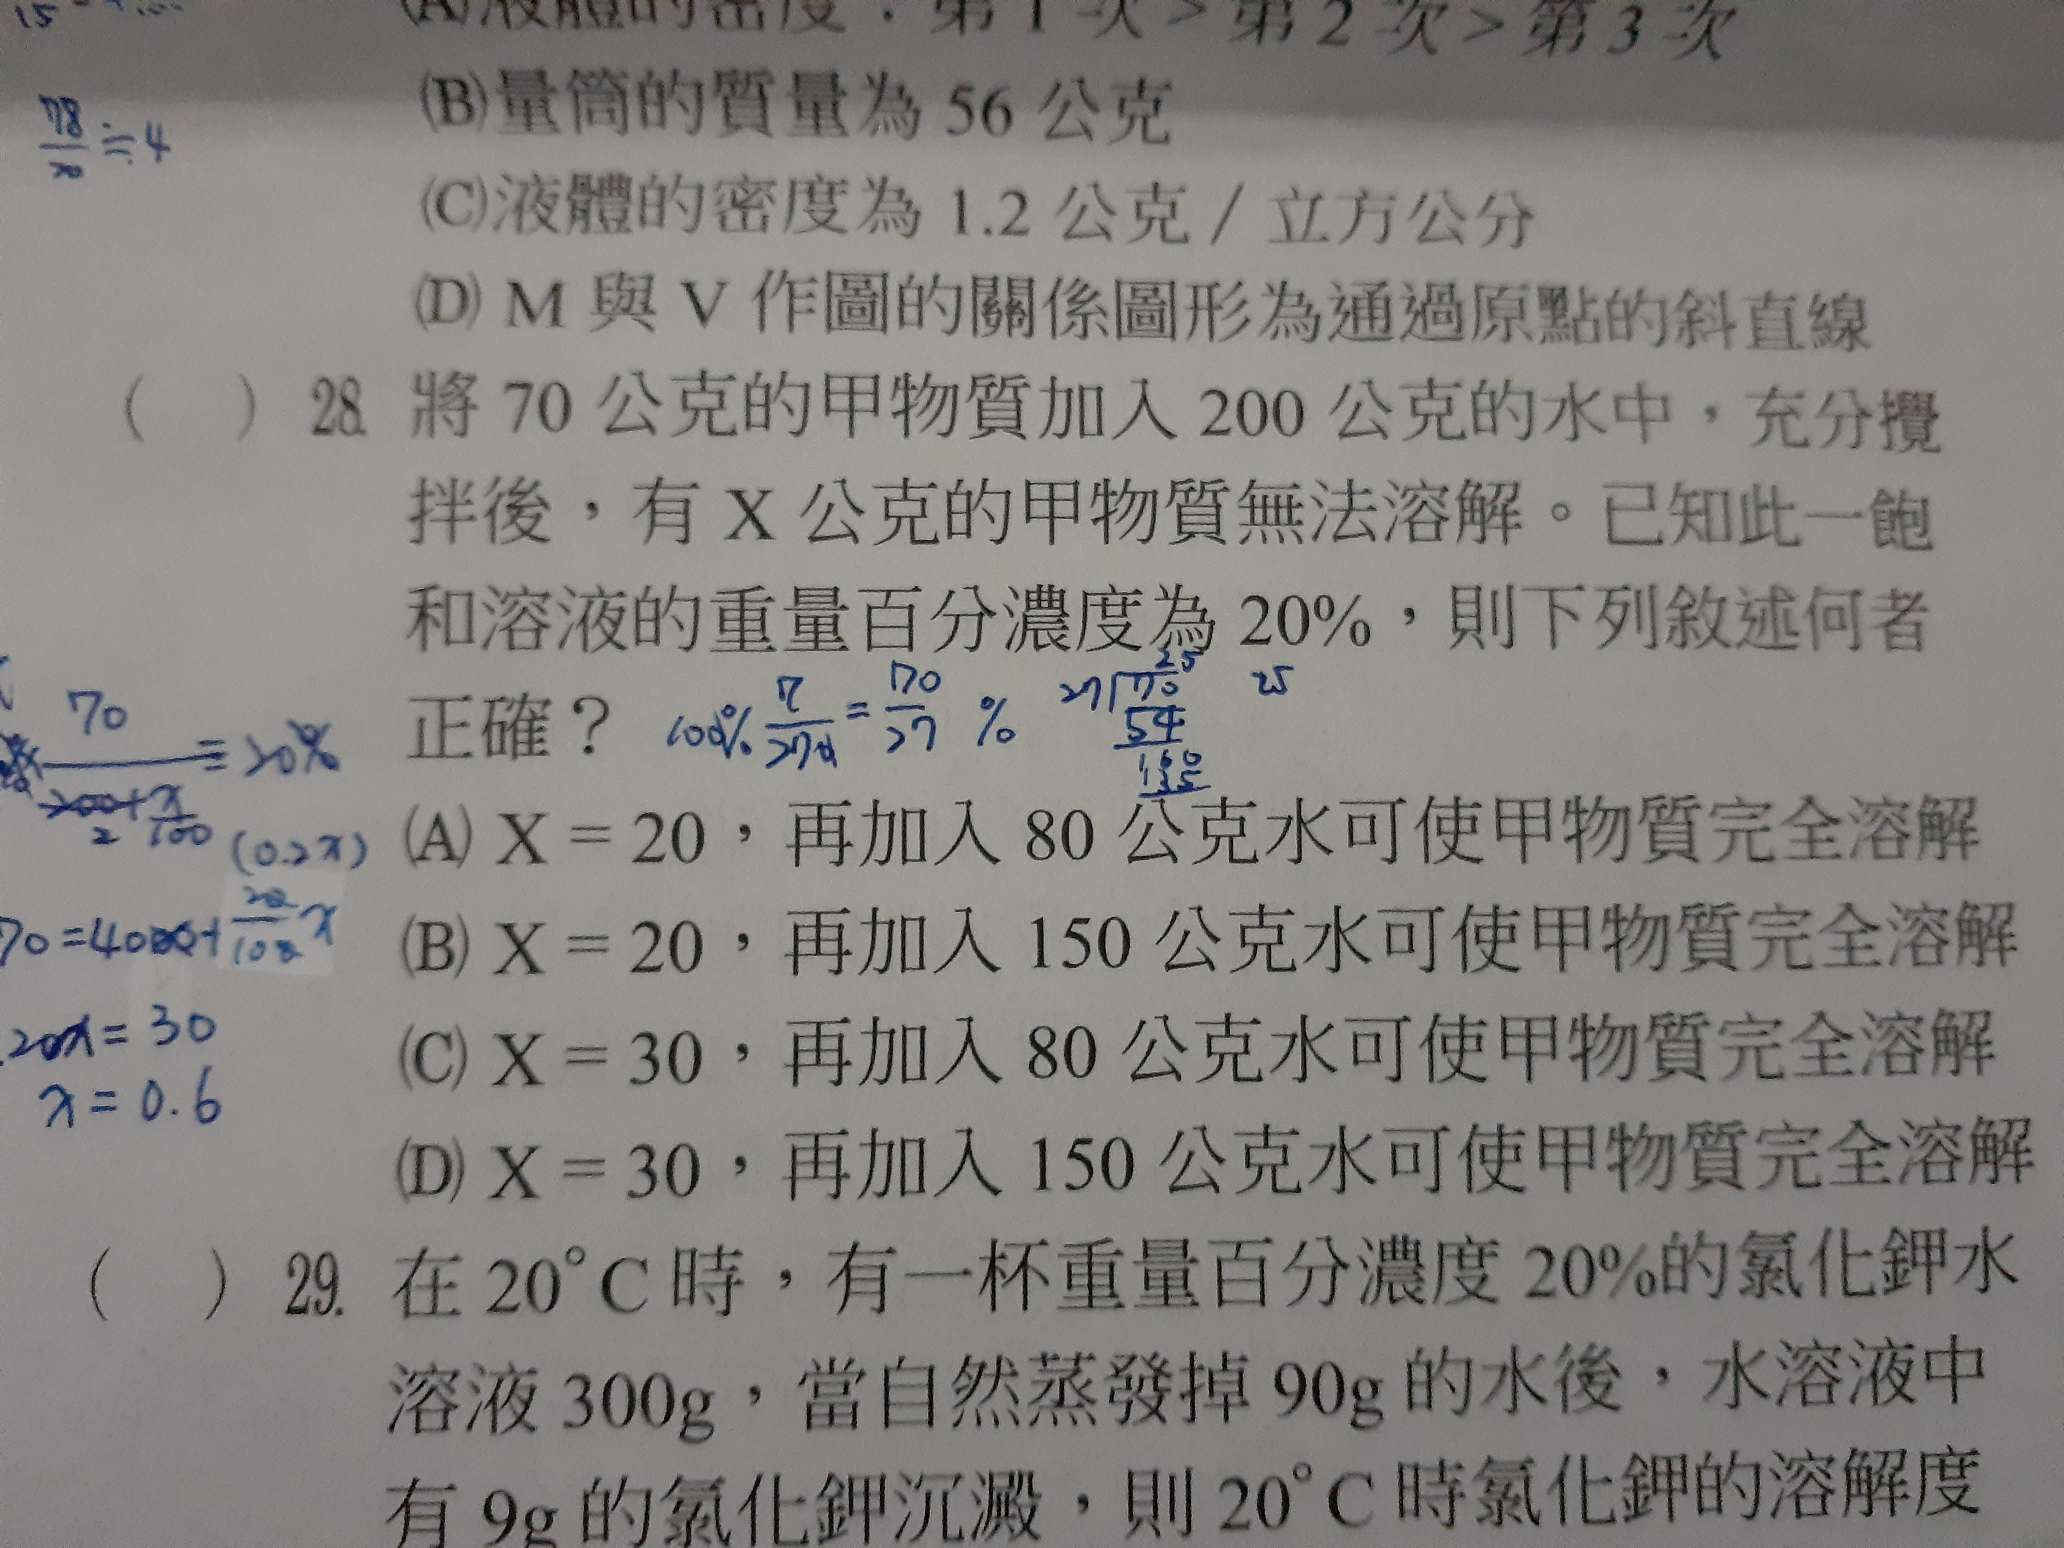 (A)液體的密度：第 1 次 > 第 2 次 > 第 3 次
(B)量筒的質量為 56 公克
78/20 ≒ 4
(C)液體的密度為 1.2 公克 / 立方公分
(D) M 與 V 作圖的關係圖形為通過原點的斜直線
(　) 28. 將 70 公克的甲物質加入 200 公克的水中，充分攪
拌後，有 X 公克的甲物質無法溶解。已知此一飽
和溶液的重量百分濃度為 20%，則下列敘述何者
正確？
100% 7/270 = 70/27 %
27 70 25
54
160
135
25
70
= 20%
200+x
2 100
(0.2x)
(A) X = 20，再加入 80 公克水可使甲物質完全溶解
70 = 40 + 20/100 x
(B) X = 20，再加入 150 公克水可使甲物質完全溶解
20x = 30
(C) X = 30，再加入 80 公克水可使甲物質完全溶解
x = 0.6
(D) X = 30，再加入 150 公克水可使甲物質完全溶解
(　) 29. 在 20°C 時，有一杯重量百分濃度 20%的氯化鉀水
溶液 300g，當自然蒸發掉 90g 的水後，水溶液中
有 9g 的氯化鉀沉澱，則 20°C 時氯化鉀的溶解度